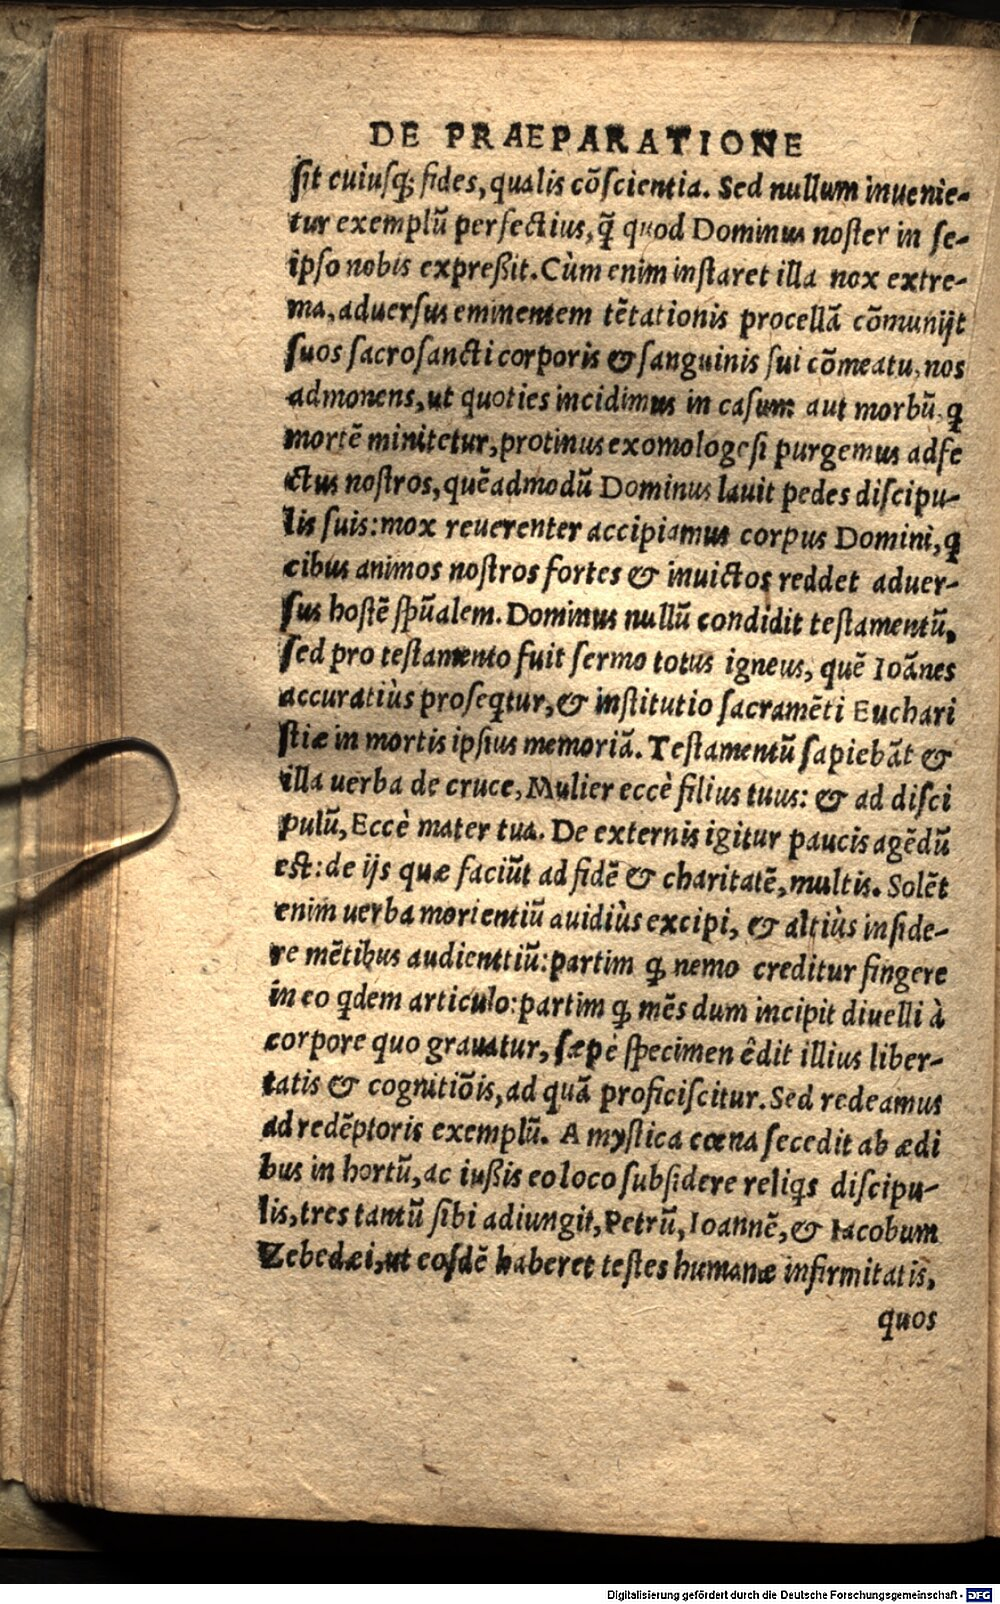 DE PRAEPARATIONE
ſit cuiuſq; fides, qualis cõſcientia. Sed nullum inuenie-
tur exemplũ perfectius, q̃ quod Dominus noſter in ſe-
ipſo nobis expreßit. Cùm enim inſtaret illa nox extre-
ma, aduerſus eminentem tẽtationis procellã cõmunijt
ſuos ſacroſancti corporis & ſanguinis ſui cõmeatu, nos
admonens, ut quoties incidimus in caſum aut morbũ, ꝗ
mortẽ minitetur, protinus exomologeſi purgemus adfe
ctus noſtros, quẽadmodũ Dominus lauit pedes diſcipu-
lis ſuis: mox reuerenter accipiamus corpus Domini, ꝗ
cibus animos noſtros fortes & inuictos reddet aduer-
ſus hoſtẽ ſpũalem. Dominus nullũ condidit teſtamentũ,
ſed pro teſtamento fuit ſermo totus igneus, quẽ Ioãnes
accuratiùs proſeꝗtur, & inſtitutio ſacramẽti Euchari
ſtiæ in mortis ipſius memoriã. Teſtamentũ ſapiebãt &
illa uerba de cruce, Mulier eccè filius tuus: & ad diſci
pulũ, Eccè mater tua. De externis igitur paucis agẽdũ
est: de ijs quæ faciũt ad fidẽ & charitatẽ, multis. Solẽt
enim uerba morientiũ auidiùs excipi, & altiùs inſide-
re mẽtibus audientiũ: partim ꝗ nemo creditur fingere
in eo ꝗdem articulo: partim ꝗ mẽs dum incipit diuelli à
corpore quo grauatur, ſæpè ſpecimen êdit illius liber-
tatis & cognitiõis, ad quã proficiſcitur. Sed redeamus
ad redẽptoris exemplũ. A myſtica cœna ſecedit ab ædi
bus in hortũ, ac iußis eo loco ſubſidere reliꝗs diſcipu-
lis, tres tantũ ſibi adiungit, Petrũ, Ioannẽ, & Iacobum
Zebedæi, ut eoſdẽ haberet teſtes humanæ infirmitatis,
quos
Digitalisierung gefördert durch die Deutsche Forschungsgemeinschaft - DFG